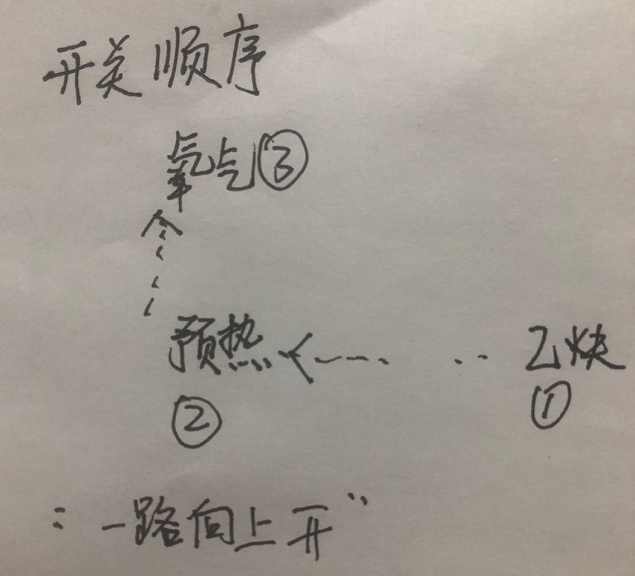 开关顺序
氧气③
预热 乙炔
② ①
"一路向上开"